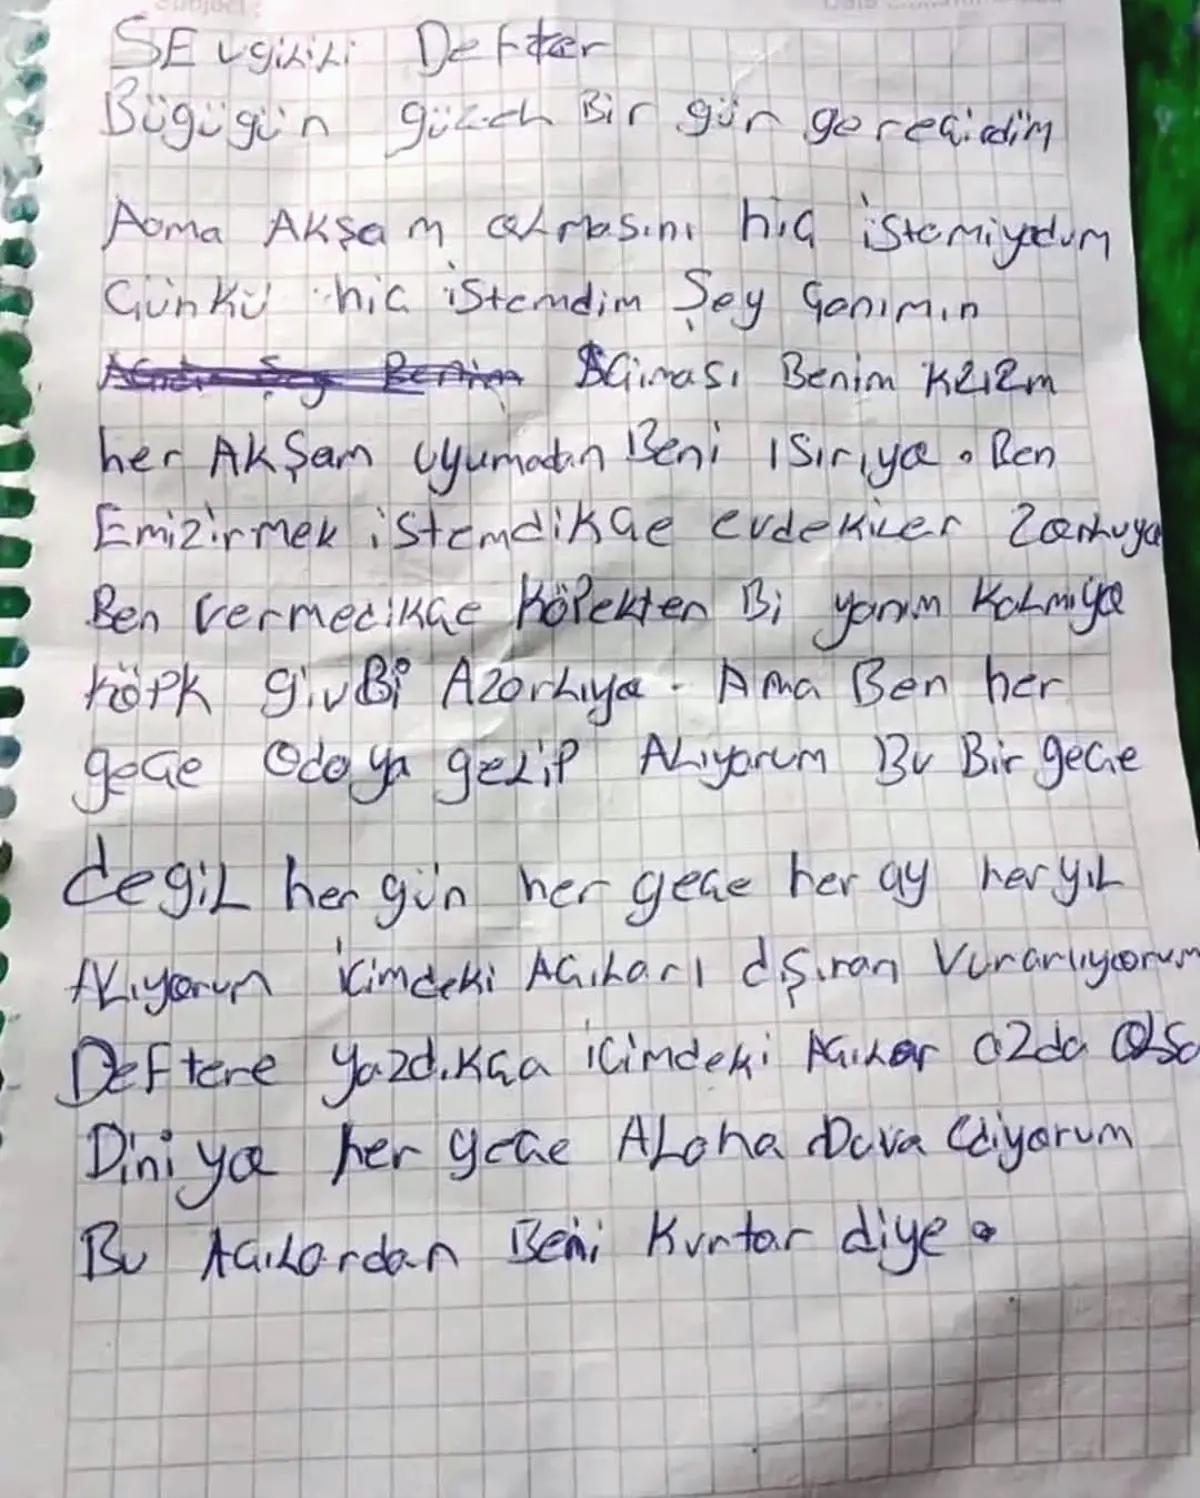 SEvgilili Defter
Bügügün güzel Bir gün gereçirdim
Aoma AKŞam olmasını hiç istemiyodum
Günkü hiç istemdim Şey Ganımın
Açıması Benim Kzızm
her AKŞam uyumadan Beni ısırıya. Ben
Emizirmek istemdikçe evdekiler zorluya
Ben vermedikçe Köpekten Bi yanım Kalmıya
Köpk givBi Azorlıya. Ama Ben her
geçe Odaya gelip Alıyorum Bu Bir geçe
degil her gün her geçe her ay her yıl
Alıyorum içimdeki Açıları dşıran Vurarlıyorum
Deftere yazdıkça içimdeki Açılar azda Olsa
Diniya her geçe Alaha Duva Ediyorum
Bu Açılardan Beni Kurtar diye.